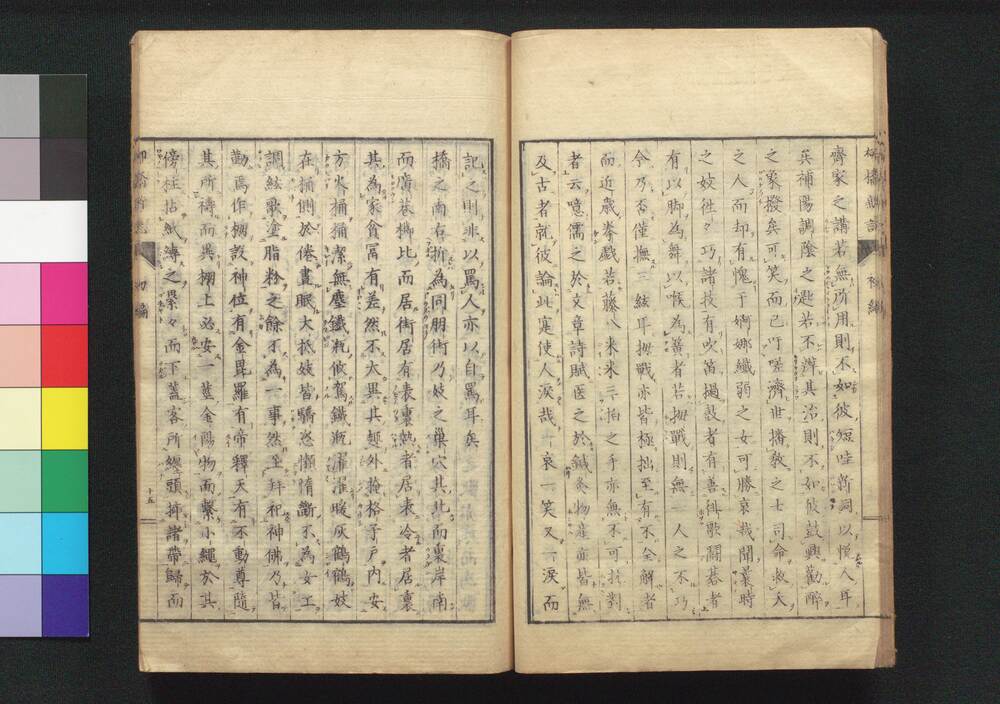 柳橋新誌 初編
齊家之講若無所用則不如彼短哇新詞以悦人耳
其補陽調陰之匙若不辨其治則不如彼鼓興勸酔
之象撥矣可笑而已吁嗟濟世播教之士司命救夭
之人而却有愧于婀娜纖弱之女可勝哀哉聞曩時
之妓徃々巧諸技有吹笛撾鼓者有善徘歌闘碁者
有以脚為舞以喉為簧者若拇戰則無一人之不巧
今乃否僅撫三絃耳拇戰亦皆極拙至有不全解者
而近歳拳戯若藤八来米三拍之手亦無不可技對
者云噫儒之於文章詩賦医之於鍼灸物産亦皆無
及古者就彼論此寔使人涙哉 哀一笑又一涙而
記之則非以罵人亦以自罵耳矣
橋之南右折為同朋街乃妓之巢穴其北而裏岸南
而廣巷櫛比而居街居有表裏熱者居表冷者居裏
其為家貧冨有差然不太異其趣外掩格子戸内安
方火桶桶潔無塵鐵瓶攸駕鐵瓶濯濯暖灰鶴鶴妓
在桶側於倦晝眠大抵妓皆驕恣懶惰衞不為女工
調絃歌塗脂粉之餘不為一事然至拜祀神佛乃皆
勤焉作棚設神位有金毘羅有帝釋天有不動尊隨
其所禱而異棚上必安一莖金陽物而繋小繩於其
傍柱拈紙縛之累々而下蓋客所纏頭挿諸帶歸而
柳橋新誌 初編
十五